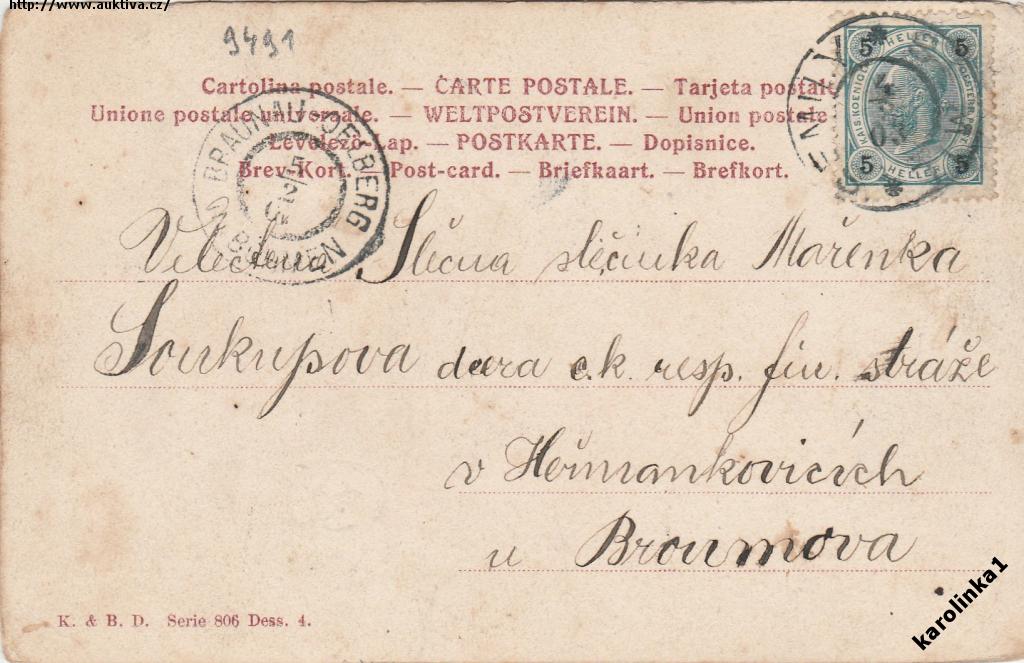 http://www.auktiva.cz/
9491
Cartolina postale. — CARTE POSTALE. — Tarjeta postal
Unione postale universale. — WELTPOSTVEREIN. — Union postale
Levelező-Lap. — POSTKARTE. — Dopisnice.
Brev-Kort. — Post-card. — Briefkaart. — Brefkort.
BRAUNAU-OELBERG
BÖHMEN
5 HELLER 5
5 HELLER 5
Velectěná Slečna slečinka Mařenka
Soukupova dcera c.k. resp. fin. stráže
v Heřmankovicích
u Broumova
K. & B. D. Serie 806 Dess. 4.
karolinka1